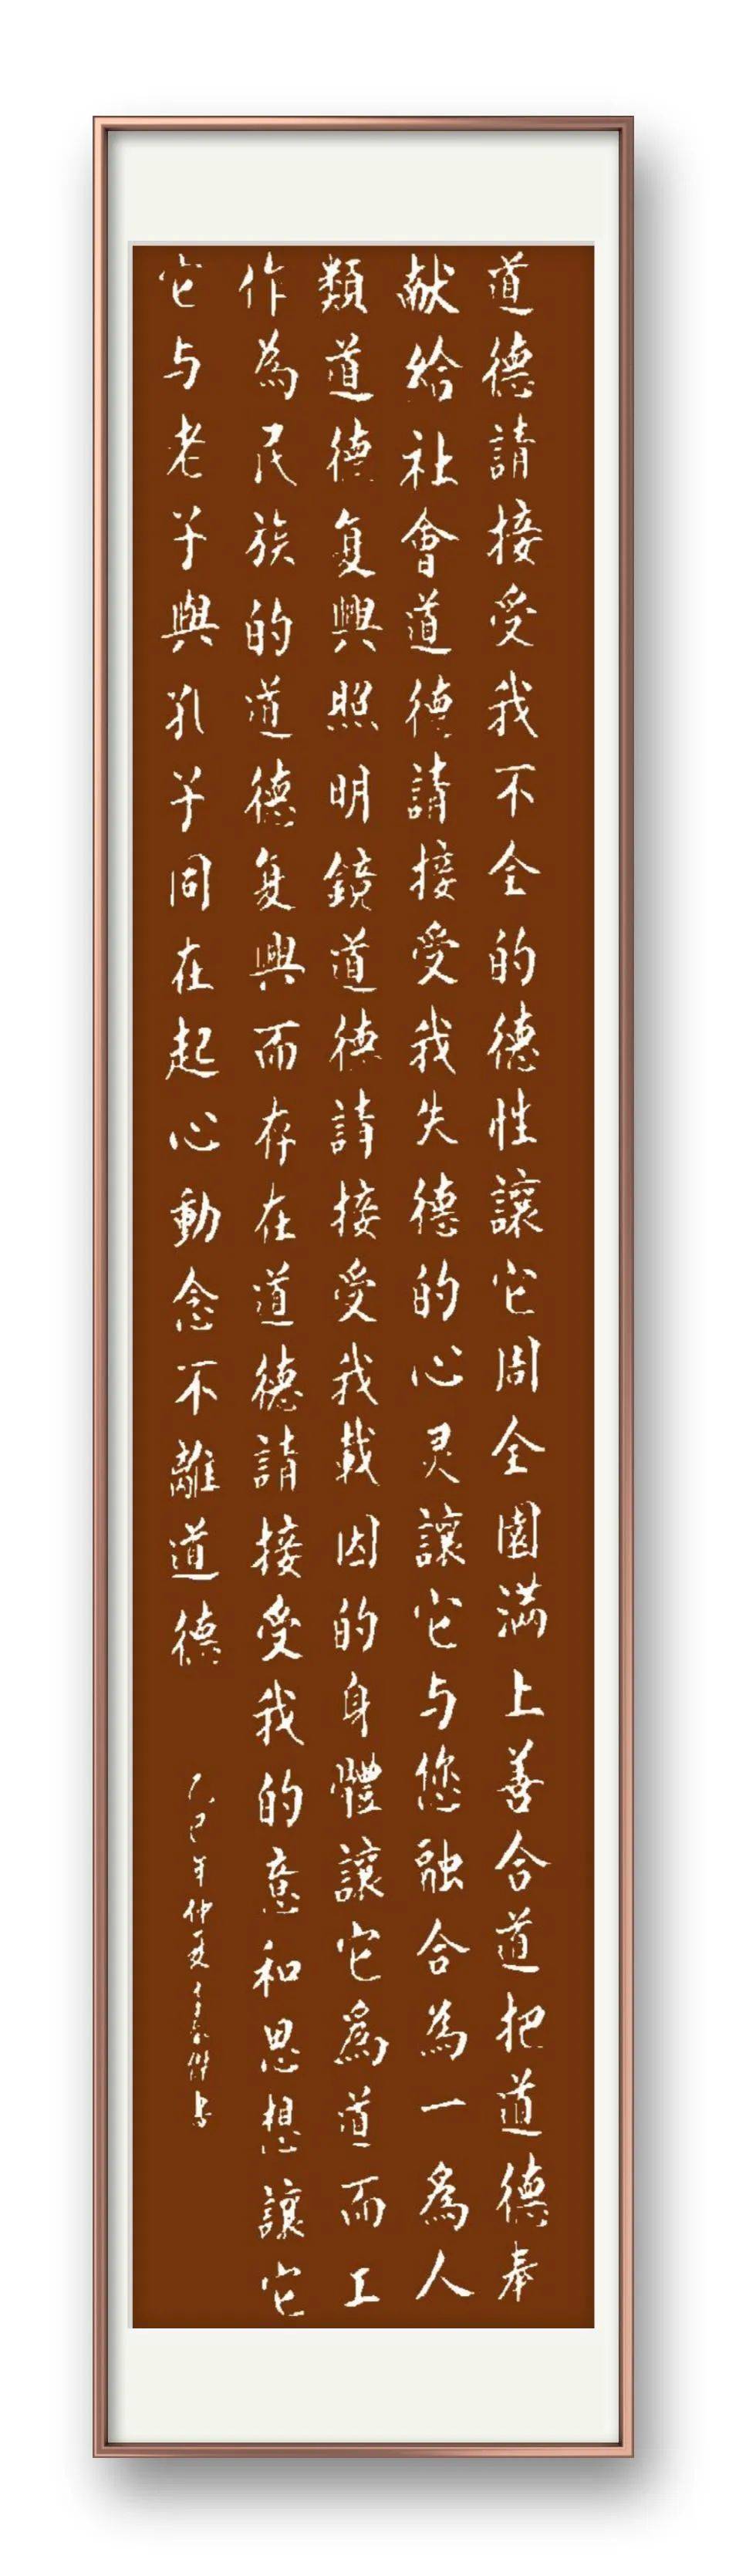 道德請接受我不全的德性讓它周全圓满上善合道把道德奉
献给社會道德請接受我失德的心灵讓它与您融合為一為人
類道德复興照明鏡道德請接受我載因的身體讓它爲道而工
作為民族的道德复興而存在道德請接受我的意和思想讓它
它与老子與孔子同在起心動念不離道德
乙巳年仲夏
書